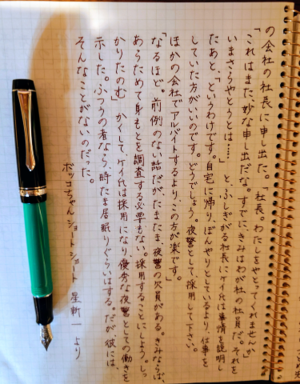 の会社の社長に申し出た。「社長、わたしをやとってくれませんか」
「これはまた妙な申し出だな。すでに、きみはわが社の社員だ。それを
いまさらやとうとは……」と、ふしぎがる社長にケイ氏は事情を説明し
たあと、「というわけです。自宅に帰り、ぼんやりとしているより、仕事を
していた方がいいのです。どうでしょう、夜警として、採用して下さい。
ほかの会社でアルバイトするより、この方が楽です。」
「なるほど。前例のない話だが、たまたま、夜警の欠員がある。きみならば、
あらためて身もとを調査する必要もない。採用することにしよう。しっ
かりたのむ」 かくして、ケイ氏は採用になり、優秀な夜警としての働きを
示した。ふつうの者なら、時たま居眠りぐらいはする。だが、彼には、
そんなことがないのだった。
ボッコちゃん ショート・ショート 星新一より